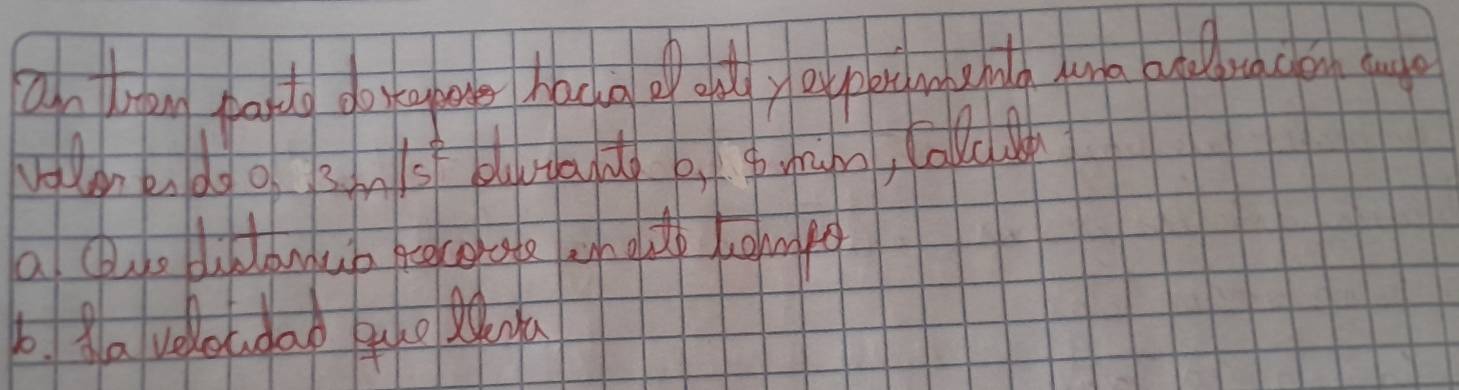 Un tren parte de reposo hacia el este y experimenta una aceleración cuyo
valor es de 0, 3m/s² durante 0, 8 min, Calcular
a. Que distancia recorre en este tiempo
b. La velocidad que lleva